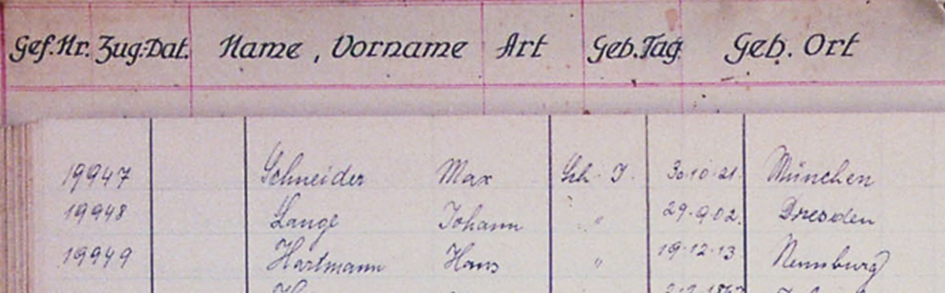 Gef.Nr. Zug.Dat. Name, Vorname Art Geb.Tag Geb. Ort
19947 Schneider Max Sch. J. 30.10.21. München
19948 Lange Johann " 29.9.02. Dresden
19949 Hartmann Hans " 19.12.13